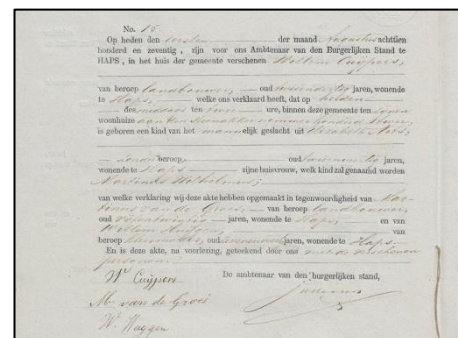 No. 15
Op heden den eersten der maand Augustus achttien
honderd en zeventig, zijn voor ons Ambtenaar van den Burgerlijken Stand te
HAPS, in het huis der gemeente verschenen Willem Cuijpers,
van beroep landbouwer, oud jaren, wonende
te Haps, welke ons verklaard heeft, dat op heden
des middags ten twee ure, binnen deze gemeente ten zijnen
woonhuize aan den nommer honderd
is geboren een kind van het mannelijk geslacht uit Elisabeth
zonder beroep, oud jaren,
wonende te Haps zijne huisvrouw, welk kind zal genaamd worden
Martinus Wilhelmus;
van welke verklaring wij deze akte hebben opgemaakt in tegenwoordigheid van
van de Groes, van beroep landbouwer,
oud jaren, wonende te Haps, en van
Willem van
beroep oud jaren, wonende te Haps
En is deze akte, na voorlezing, geteekend door ons met de verschenen
personen.
W Cuijpers De ambtenaar van den burgerlijken stand,
M van de Groes
W.